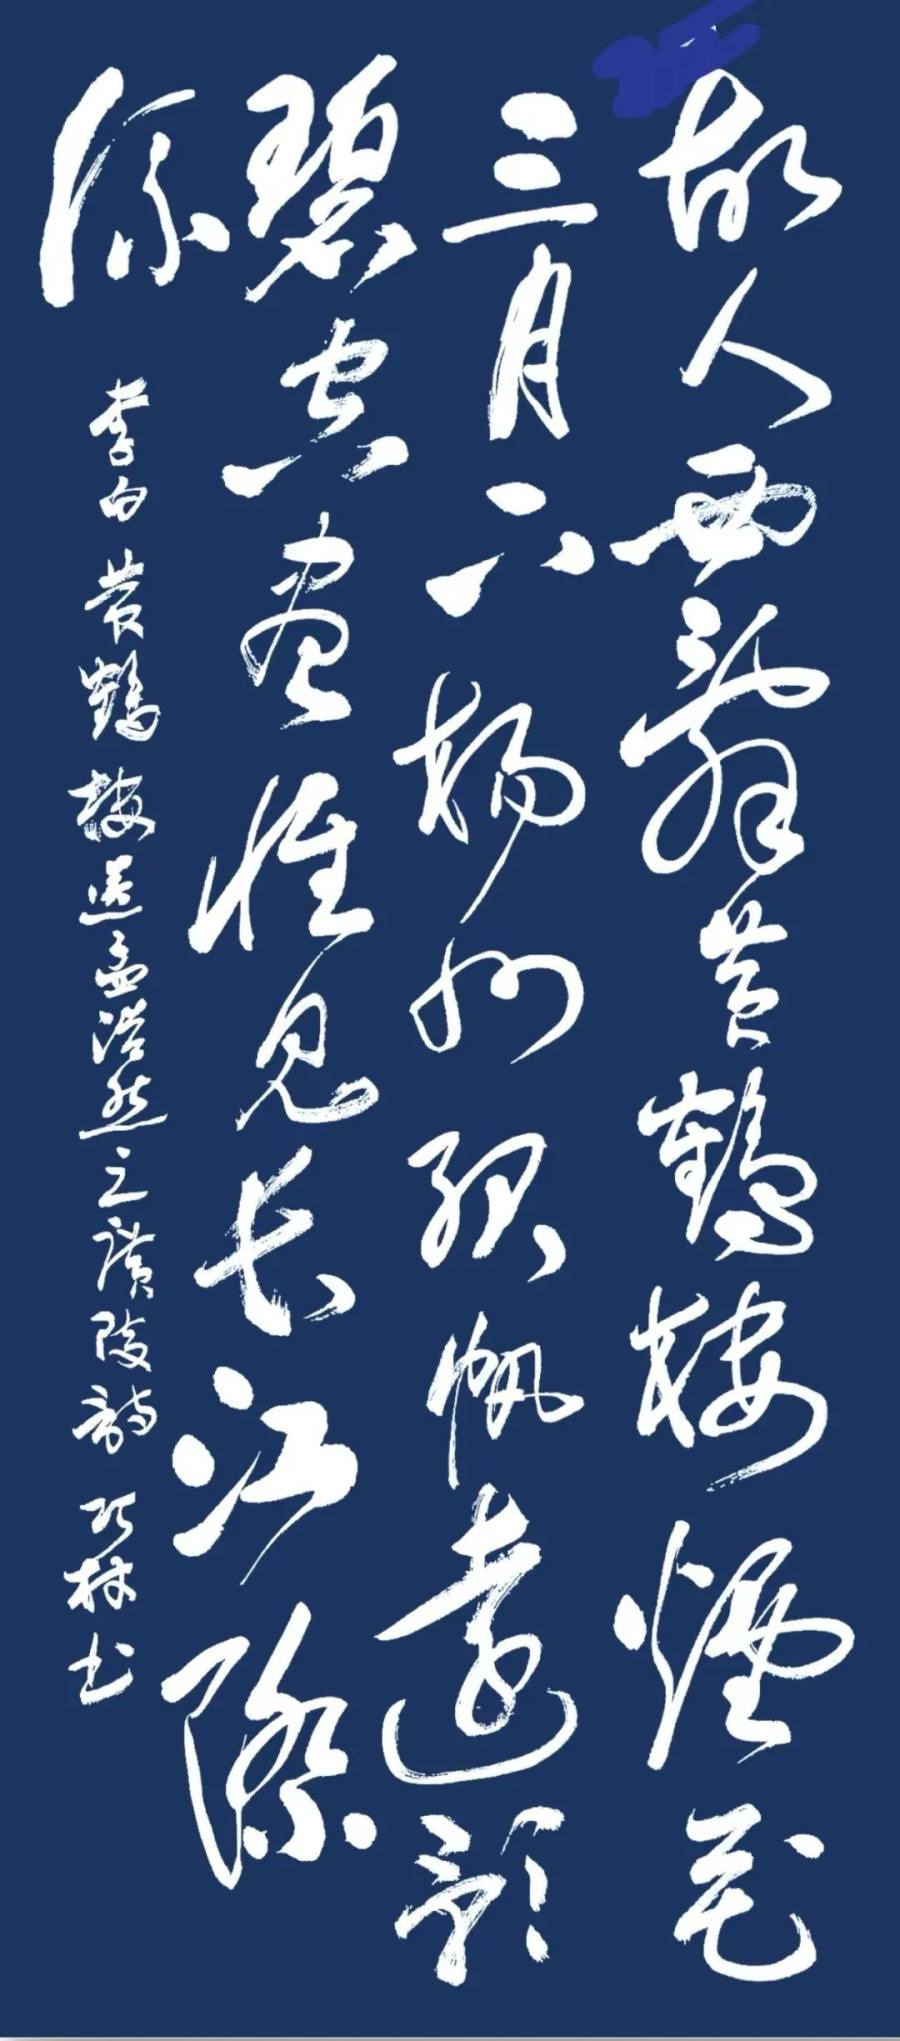 故人西辭黄鶴樓煙花
三月下揚州孤帆遠影
碧空盡惟見长江際
流
李白黄鶴樓送孟浩然之廣陵詩 巧林书